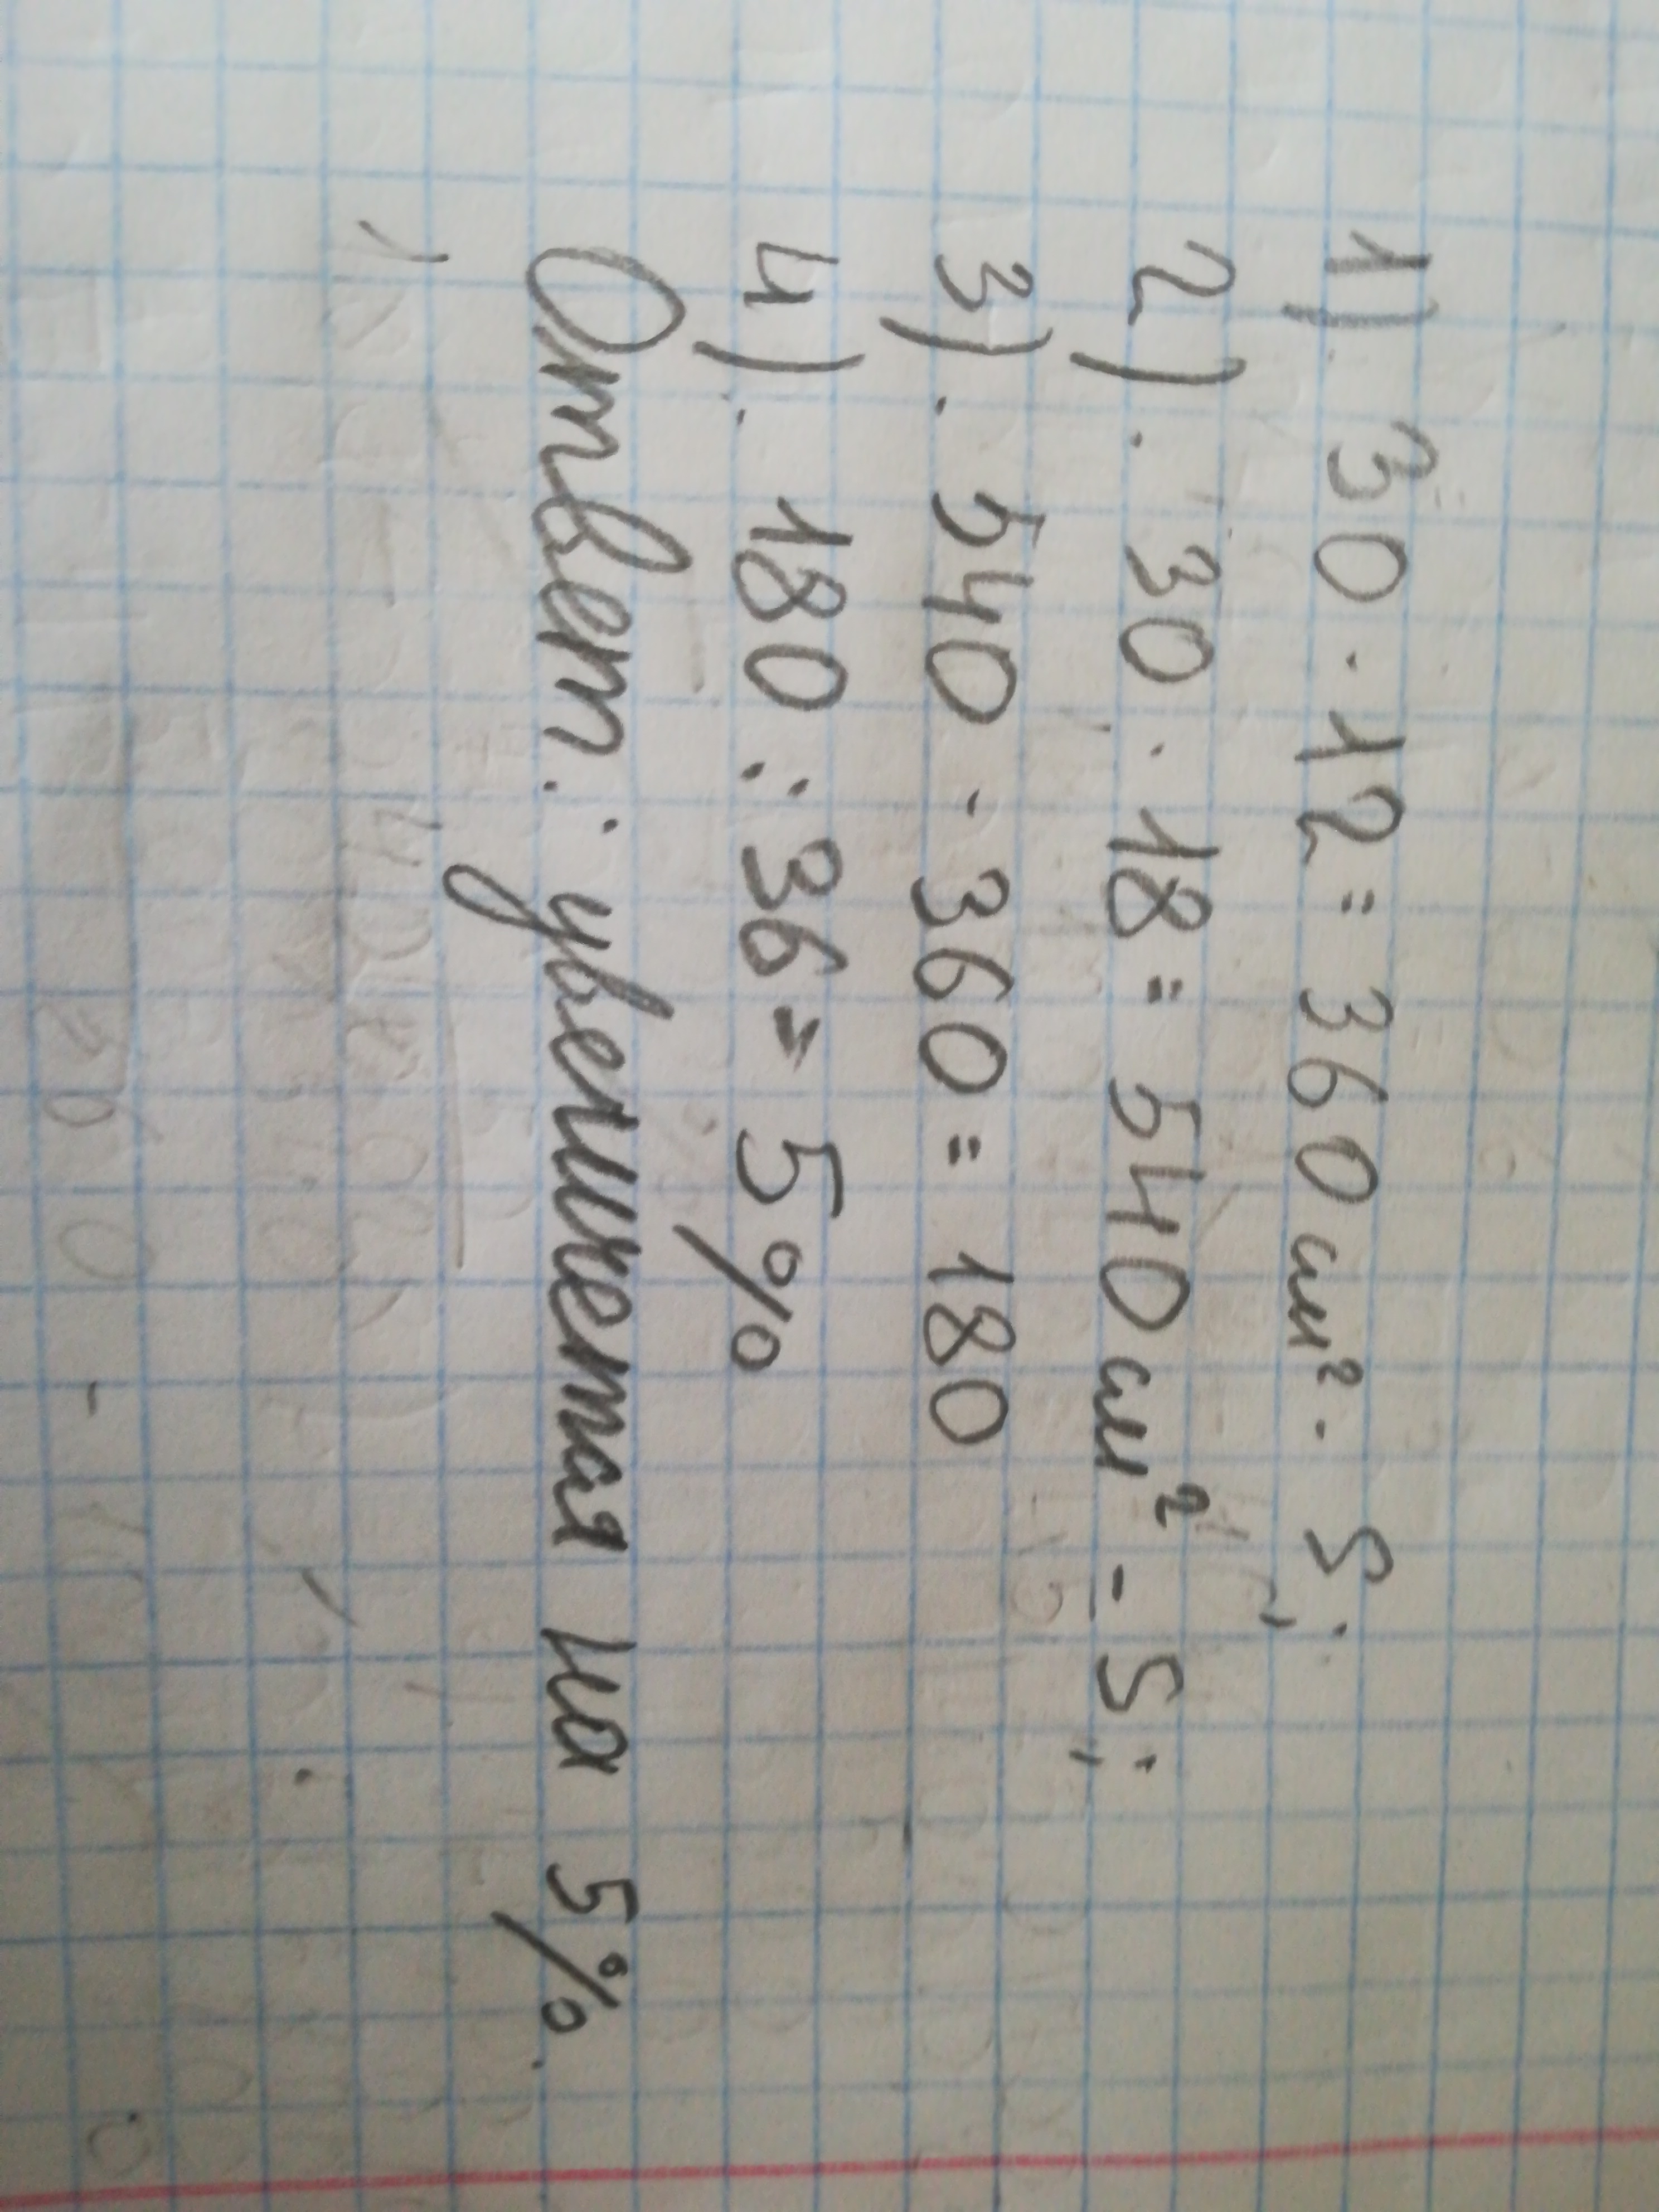 1) 30 · 12 = 360 см² - S;
2). 30 · 18 = 540 см² - S;
3). 540 - 360 = 180
4). 180 : 36 = 5%
Ответ: увеличется на 5%